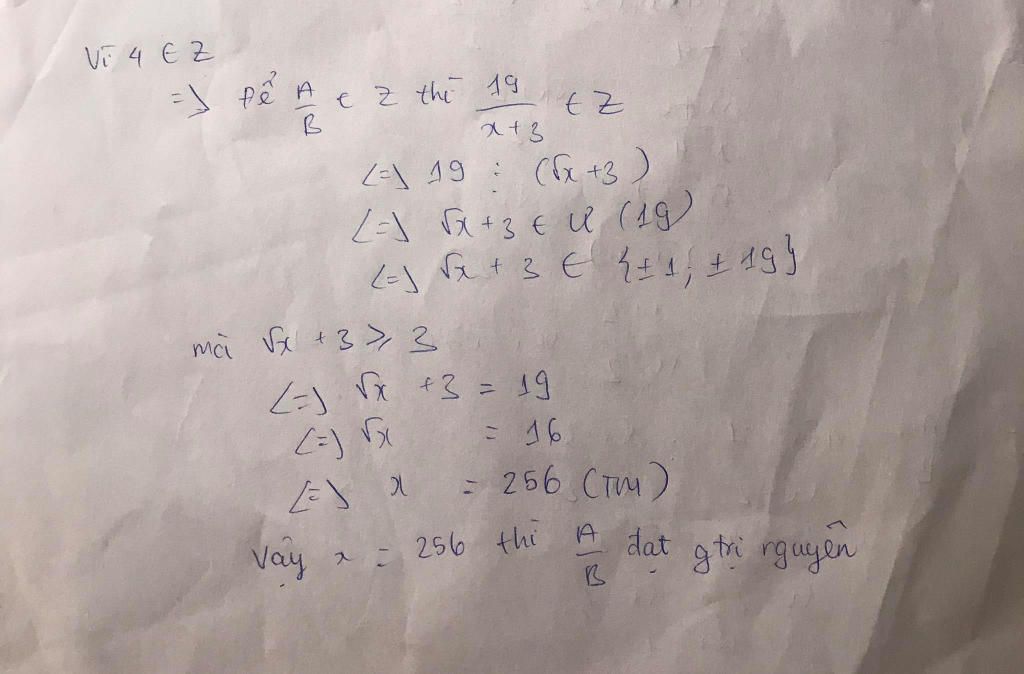 Vì 4 ∈ Z
=> Để A/B ∈ Z thì 19/(x+3) ∈ Z
<=> 19 ⋮ (√x +3)
<=> √x + 3 ∈ Ư (19)
<=> √x + 3 ∈ {±1; ±19}
mà √x + 3 ≥ 3
<=> √x + 3 = 19
<=> √x = 16
<=> x = 256 (TM)
Vậy x = 256 thì A/B đạt gtrị nguyên